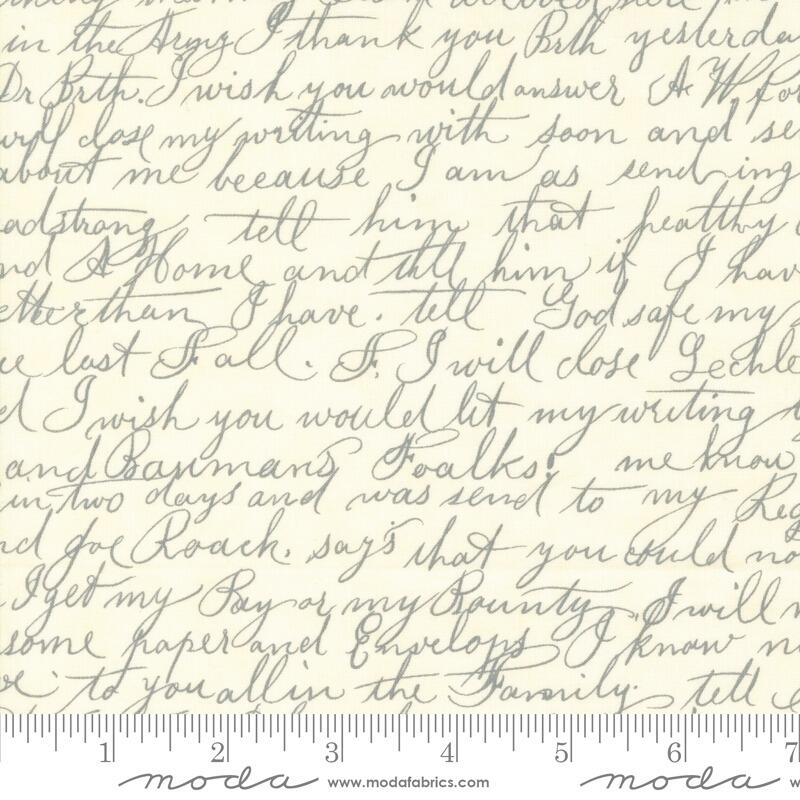 in the Army I thank you Brth yesterda
Dr Brth. I wish you would answer A W for
will close my writing with soon and se
about me because I am as send ing
adstrong tell him that healthy
nd A Home and till him if I hav
etter than I have. tell God safe my
last Fall. F. I will close Lechle
d I wish you would let my writing
and Bauman's Foalks! me know
in two days and was send to my Reg
nd Joe Roack. say's that you could no
I get my Pay or my Bounty. I will
some paper and Envelops I know n
to you all in the Family. tell
1 2 3 4 5 6 7
moda www.modafabrics.com moda w